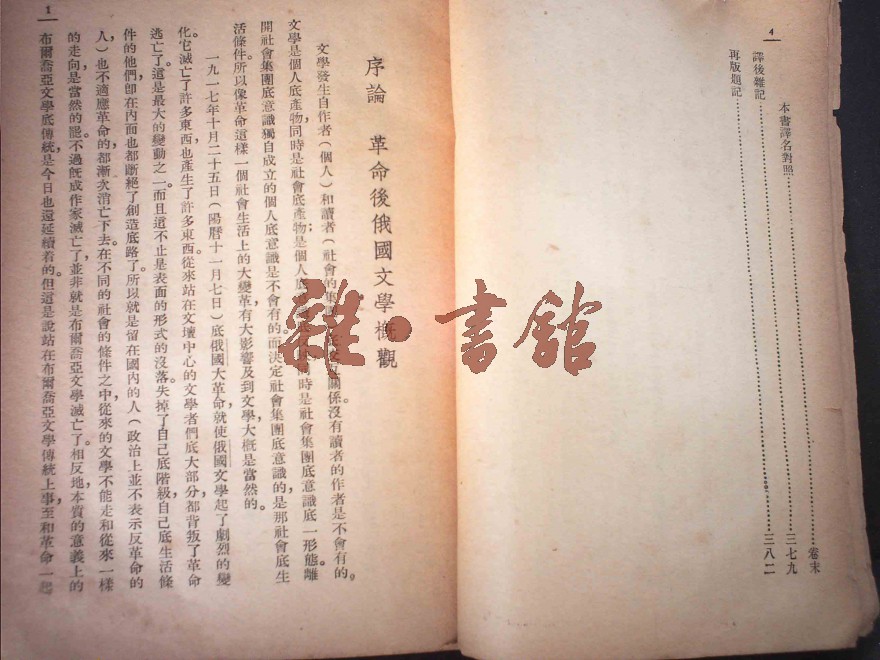 4
本書譯名對照……………………卷末
譯後雜記……………………三七九
再版題記……………………三八二
序論　革命後俄國文學概觀
文學發生自作者（個人）和讀者（社會的集關係。沒有讀者的作者是不會有的。
文學是個人底產物，同時是社會底產物；是個人底時是社會集團底意識底一形態。離
開社會集團底意識獨自成立的個人底意識是不會有的。而決定社會集團底意識的是那社會底生
活條件。所以像革命這樣一個社會生活上的大變革，有大影響及到文學，大概是當然的。
一九一七年十月二十五日（陽曆十一月七日）底俄國大革命，就使俄國文學起了劇烈的變
化。它滅亡了許多東西，也產生了許多東西。從來站在文壇中心的文學者們底大部分，都背叛了革命，
逃亡了。這是最大的變動之一。而且這不止是表面的形式的沒落。失掉了自己底階級，自己底生活條
件的他們，卽在內面也都斷絕了創造底路了。所以就是留在國內的人（政治上並不表示反革命的
人）也不適應革命的，都漸次消亡下去。在不同的社會的條件之中，從來的文學不能走和從來一樣
的走向，是當然的罷。不過旣成作家滅亡了，並非就是布爾喬亞文學滅亡了。相反地，本質的意義上的
布爾喬亞文學底傳統，是今日也還延續着的。但這是說站在布爾喬亞文學傳統上事，至和革命一起
1
雜·書館